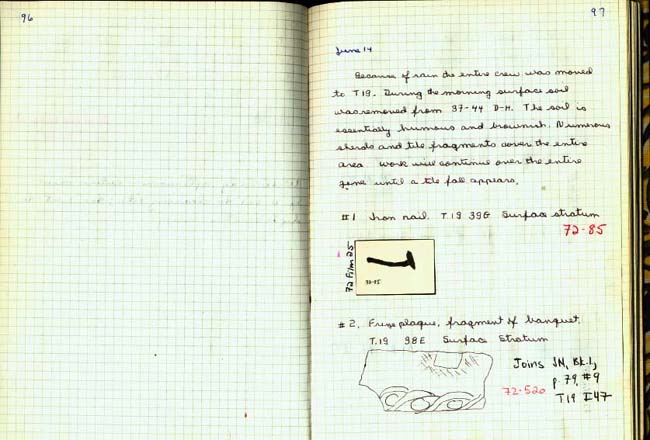 96
97
June 14
Because of rain the entire crew was moved
to T19. During the morning surface soil
was removed from 37-44 D-H. The soil is
essentially humous and brownish. Numerous
sherds and tile fragments cover the entire
area. Work will continue over the entire
zone until a tile fall appears.
#1 Iron nail. T.19 39G Surface stratum
72-85
72 Film 25
72-85
#2. Frieze plaque, fragment of banquet.
T.19 38E Surface Stratum
Joins JN, Bk.1,
p. 79, #9
T19 I47
72-520